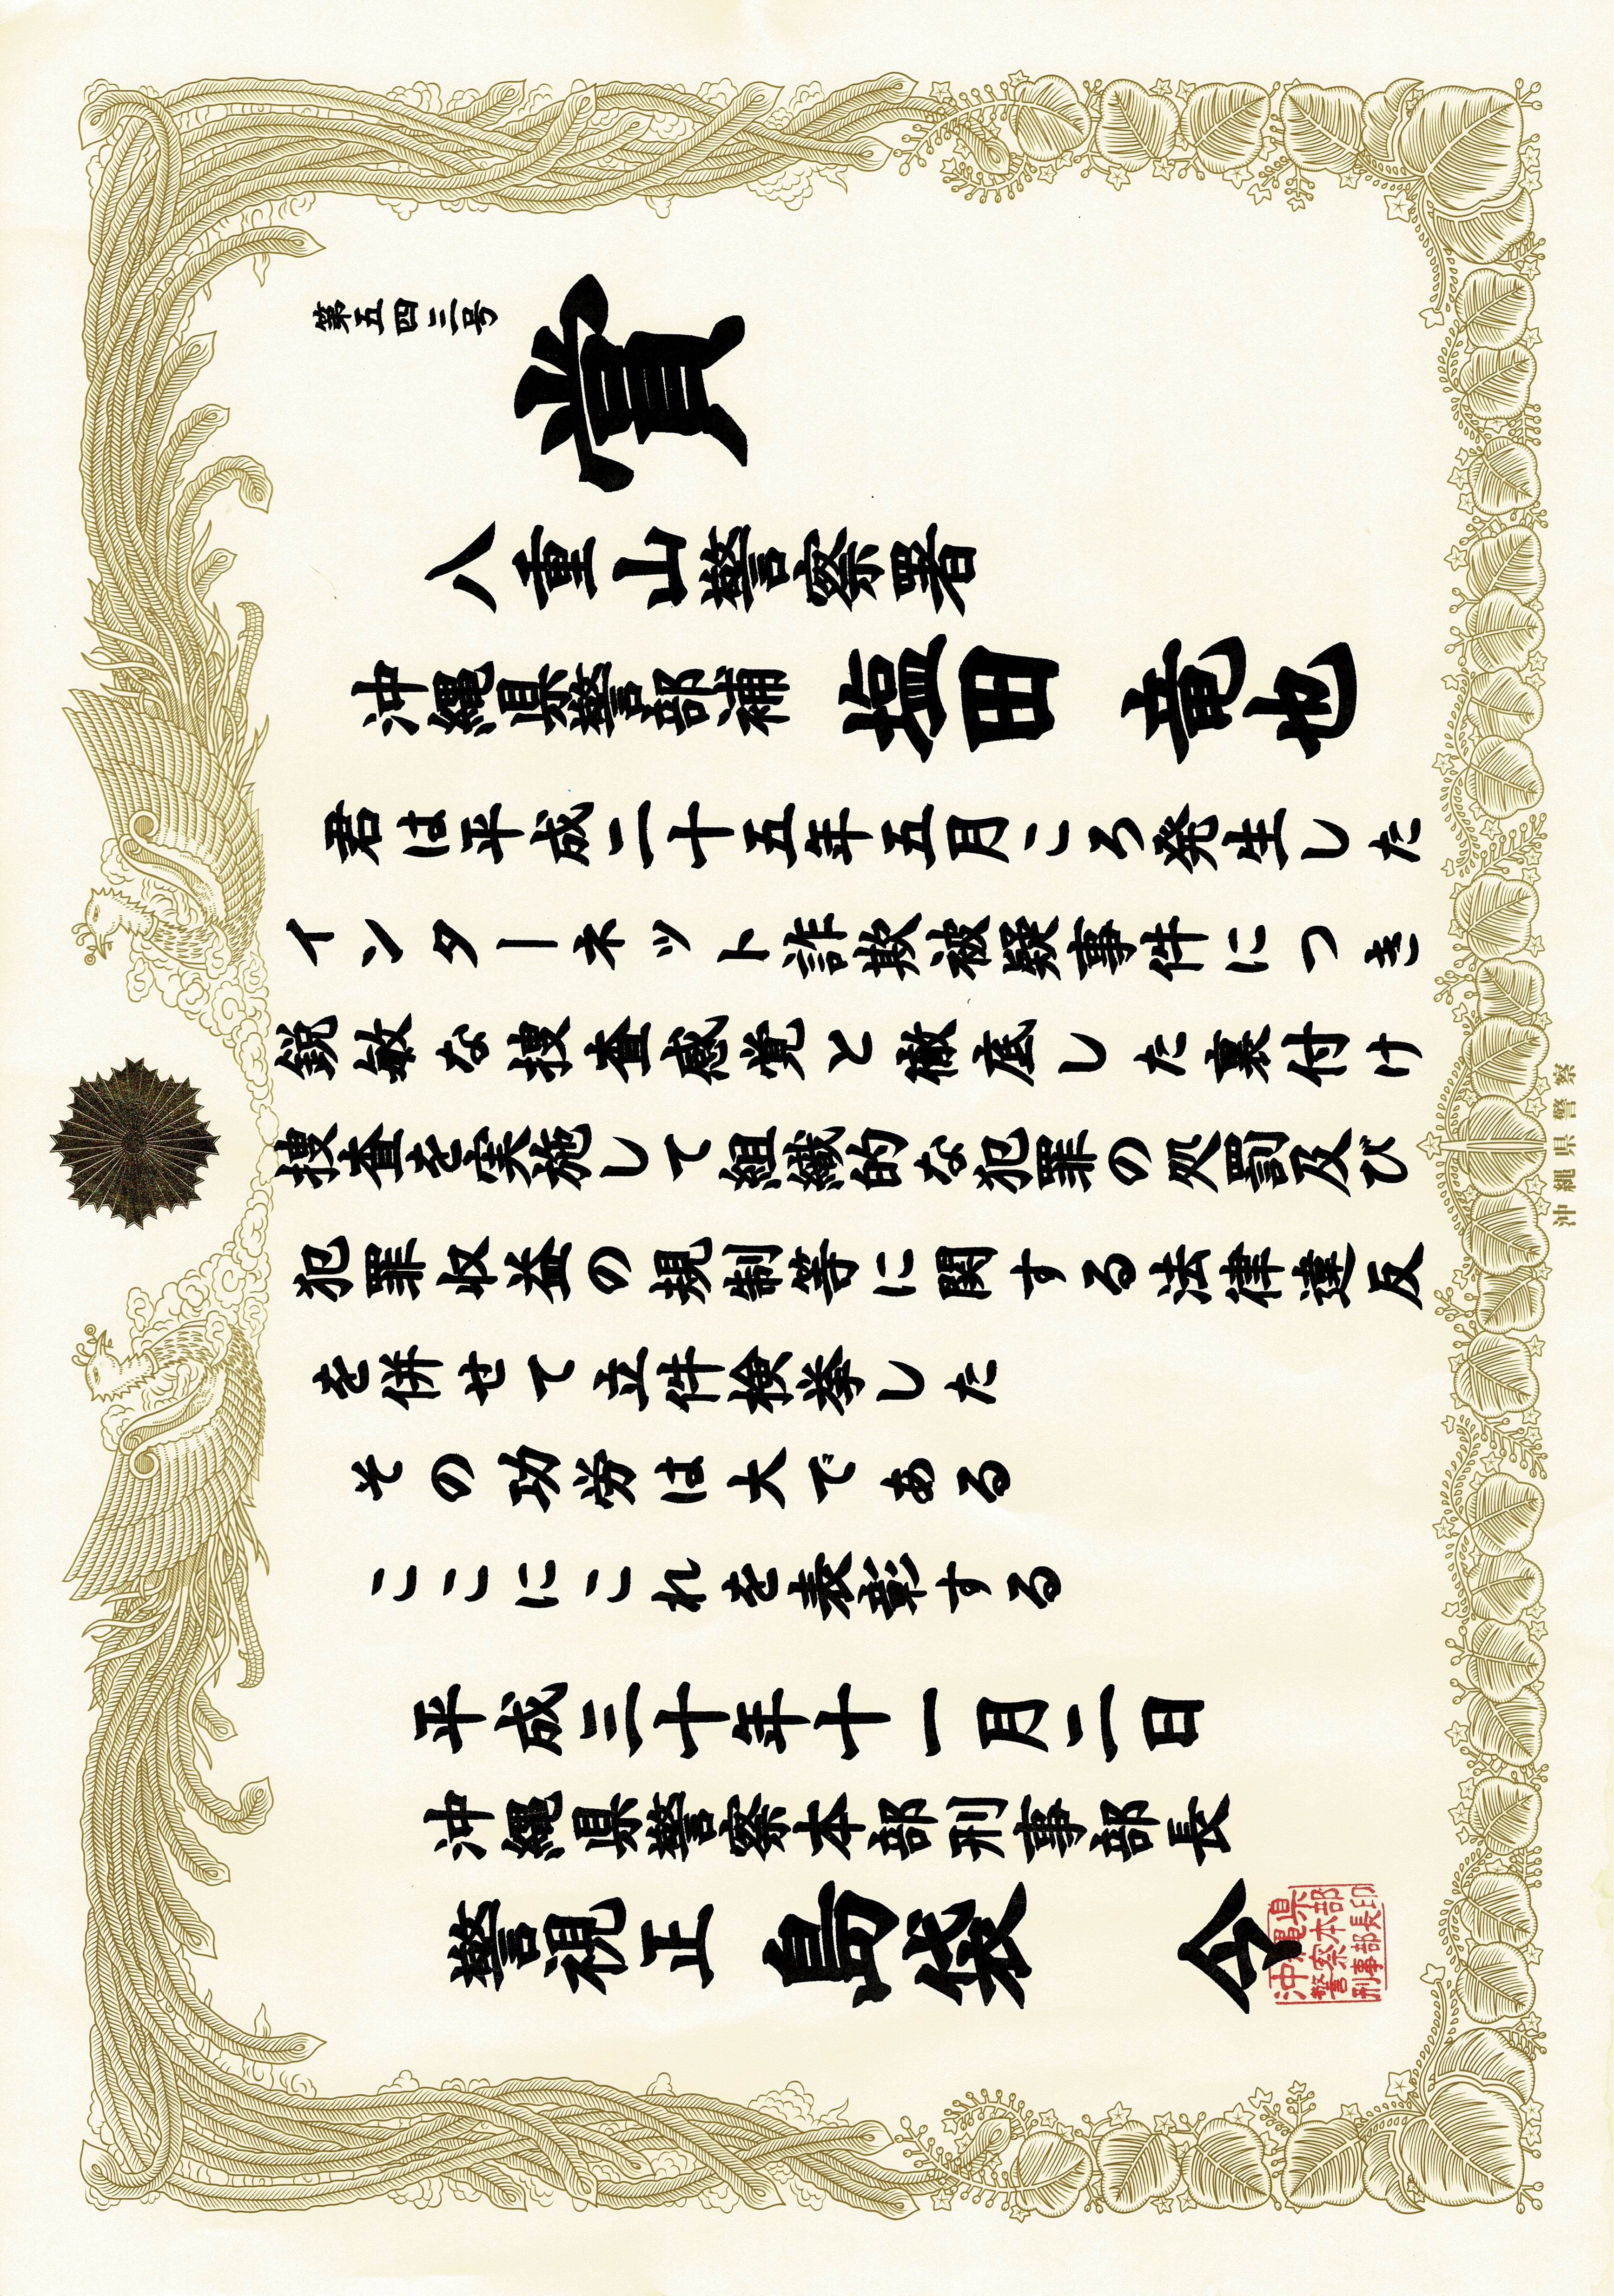 第五四三号
賞
八重山警察署
沖縄県警部補 塩田 竜也
君は平成二十五年五月ころ発生した
インターネット詐欺被疑事件につき
鋭敏な捜査感覚と徹底した裏付け
捜査を実施して組織的な犯罪の処罰及び
犯罪収益の規制等に関する法律違反
を併せて立件検挙した
その功労は大である
ここにこれを表彰する
平成三十年十一月二日
沖縄県警察本部刑事部長
警視正 島袋 令
沖縄県
警察本部
刑事部長印
沖縄県警察